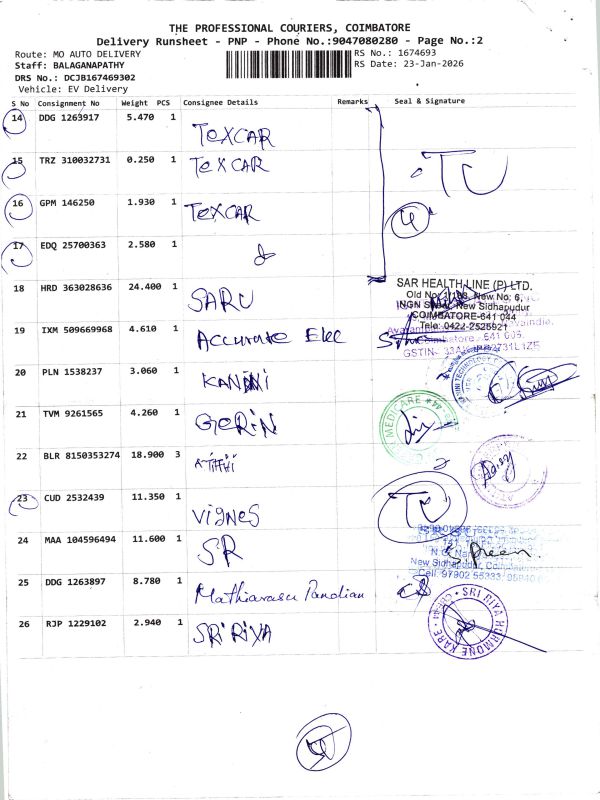 THE PROFESSIONAL COURIERS, COIMBATORE
Delivery Runsheet - PNP - Phone No.:9047080280 - Page No.:2
Route: MO AUTO DELIVERY
Staff: BALAGANAPATHY
DRS No.: DCJB167469302
Vehicle: EV Delivery
RS No.: 1674693
RS Date: 23-Jan-2026
S No Consignment No Weight PCS Consignee Details Remarks Seal & Signature
14 DDG 1263917 5.470 1 TEXCAR
15 TRZ 310032731 0.250 1 TEXCAR
TU
16 GPM 146250 1.930 1 TEXCAR
4
17 EDQ 25700363 2.580 1
18 HRD 363028636 24.400 1 SARU
SAR HEALTH LINE (P) LTD.
New No: 6,
New Sidhapudur
COIMBATORE-641 044
Tele: 0422-2525921
19 IXM 509669968 4.610 1 Accurate Elec
20 PLN 1538237 3.060 1
21 TVM 9261565 4.260 1 GERIN
MEDICARE
22 BLR 8150353274 18.900 3
23 CUD 2532439 11.350 1 VIGNES
TU
24 MAA 104596494 11.600 1 SR
New Sidhapudur,
25 DDG 1263897 8.780 1 Mathiarasu Pandian
26 RJP 1229102 2.940 1 SRI RIYA
SRI RIYA HORMONE KARE